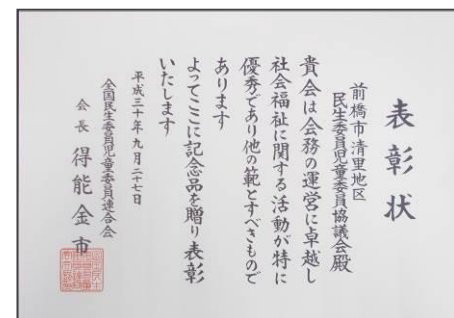 表彰状
前橋市清里地区
民生委員児童委員協議会殿
貴会は会務の運営に卓越し
社会福祉に関する活動が特に
優秀であり他の範とすべきもので
あります
よってここに記念品を贈り表彰
いたします
平成三十年九月二十七日
全国民生委員児童委員連合会
会長 得能金市